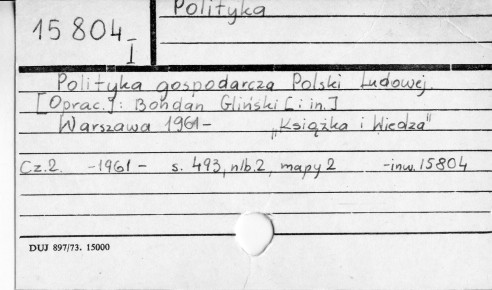 Polityka
15804
I
Polityka gospodarcza Polski Ludowej.
[Oprac.]: Bohdan Gliński [i in.]
Warszawa 1961- „Książka i Wiedza"
Cz.2. -1961- s. 493, nlb.2, mapy 2 -inw. 15804
DUJ 897/73. 15000